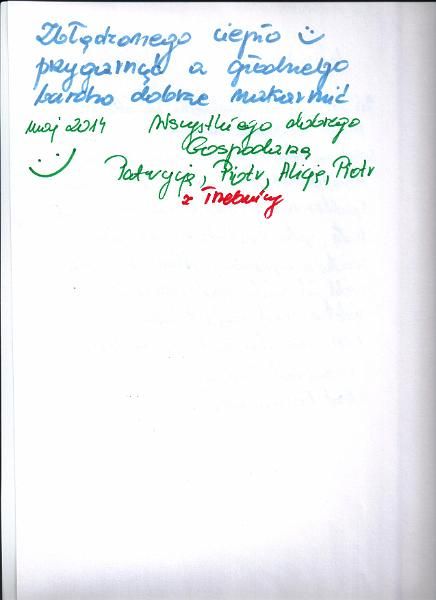 Zbłądzonego ciepło
przygarnąć a głodnego
bardzo dobrze nakarmić
maj 2014 Wszystkiego dobrego
Gospodarzą
Patrycja, Piotr, Alicja, Piotr
z Trzebnicy